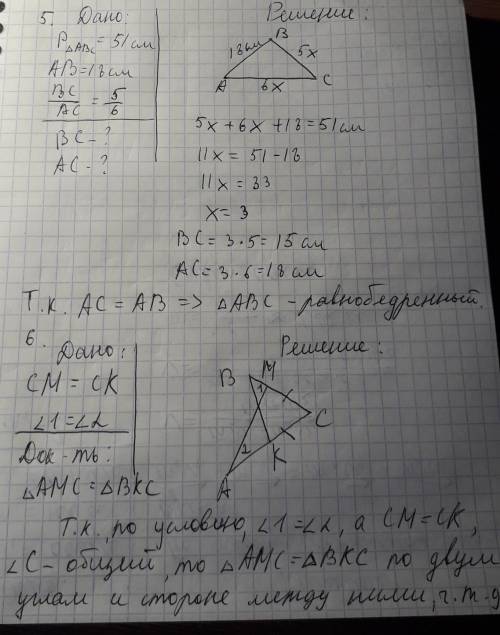 5. Дано:
P△ABC = 51 см
AB = 18 см
BC/AC = 5/6
BC - ?
AC - ?
Решение:
B
18 см
5x
A
6x
C
5x + 6x + 18 = 51 см
11x = 51 - 18
11x = 33
x = 3
BC = 3 · 5 = 15 см
AC = 3 · 6 = 18 см
Т.к. AC = AB => △ABC - равнобедренный.
6.
Дано:
CM = CK
∠1 = ∠2
Док-ть:
△AMC = △BKC
Решение:
B
M
1
C
2
K
A
Т.к., по условию, ∠1 = ∠2, а CM = CK,
∠C - общий, то △AMC = △BKC по двум
углам и стороне между ними, ч.т.д